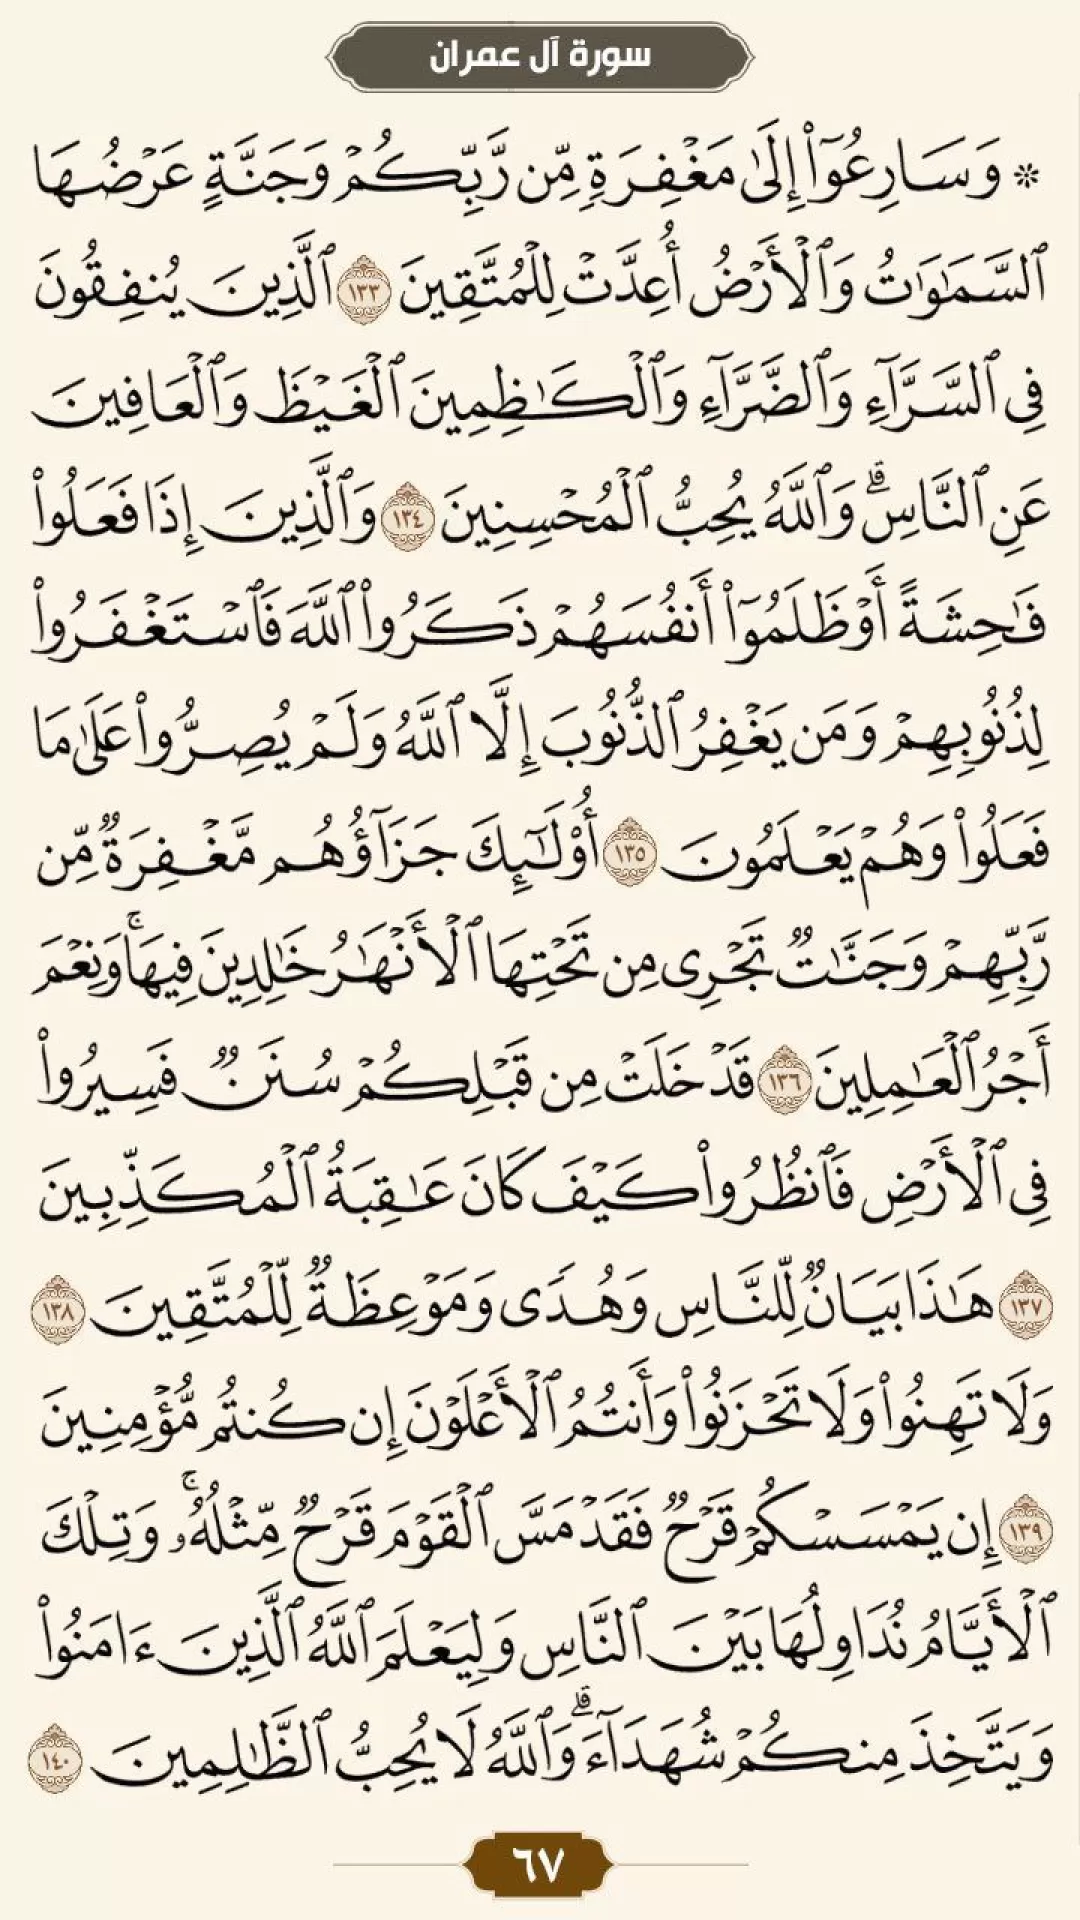 سورة آل عمران
* وَسَارِعُوٓا۟ إِلَىٰ مَغْفِرَةٍ مِّن رَّبِّكُمْ وَجَنَّةٍ عَرْضُهَا
ٱلسَّمَٰوَٰتُ وَٱلْأَرْضُ أُعِدَّتْ لِلْمُتَّقِينَ ١٣٣ ٱلَّذِينَ يُنفِقُونَ
فِى ٱلسَّرَّآءِ وَٱلضَّرَّآءِ وَٱلْكَٰظِمِينَ ٱلْغَيْظَ وَٱلْعَافِينَ
عَنِ ٱلنَّاسِ ۗ وَٱللَّهُ يُحِبُّ ٱلْمُحْسِنِينَ ١٣٤ وَٱلَّذِينَ إِذَا فَعَلُوا۟
فَٰحِشَةً أَوْ ظَلَمُوٓا۟ أَنفُسَهُمْ ذَكَرُوا۟ ٱللَّهَ فَٱسْتَغْفَرُوا۟
لِذُنُوبِهِمْ وَمَن يَغْفِرُ ٱلذُّنُوبَ إِلَّا ٱللَّهُ وَلَمْ يُصِرُّوا۟ عَلَىٰ مَا
فَعَلُوا۟ وَهُمْ يَعْلَمُونَ ١٣٥ أُو۟لَٰٓئِكَ جَزَآؤُهُم مَّغْفِرَةٌ مِّن
رَّبِّهِمْ وَجَنَّٰتٌ تَجْرِى مِن تَحْتِهَا ٱلْأَنْهَٰرُ خَٰلِدِينَ فِيهَا ۚ وَنِعْمَ
أَجْرُ ٱلْعَٰمِلِينَ ١٣٦ قَدْ خَلَتْ مِن قَبْلِكُمْ سُنَنٌ فَسِيرُوا۟
فِى ٱلْأَرْضِ فَٱنظُرُوا۟ كَيْفَ كَانَ عَٰقِبَةُ ٱلْمُكَذِّبِينَ
١٣٧ هَٰذَا بَيَانٌ لِّلنَّاسِ وَهُدًى وَمَوْعِظَةٌ لِّلْمُتَّقِينَ ١٣٨
وَلَا تَهِنُوا۟ وَلَا تَحْزَنُوا۟ وَأَنتُمُ ٱلْأَعْلَوْنَ إِن كُنتُم مُّؤْمِنِينَ
١٣٩ إِن يَمْسَسْكُمْ قَرْحٌ فَقَدْ مَسَّ ٱلْقَوْمَ قَرْحٌ مِّثْلُهُۥ ۚ وَتِلْكَ
ٱلْأَيَّامُ نُدَاوِلُهَا بَيْنَ ٱلنَّاسِ وَلِيَعْلَمَ ٱللَّهُ ٱلَّذِينَ ءَامَنُوا۟
وَيَتَّخِذَ مِنكُمْ شُهَدَآءَ ۗ وَٱللَّهُ لَا يُحِبُّ ٱلظَّٰلِمِينَ ١٤٠
٦٧